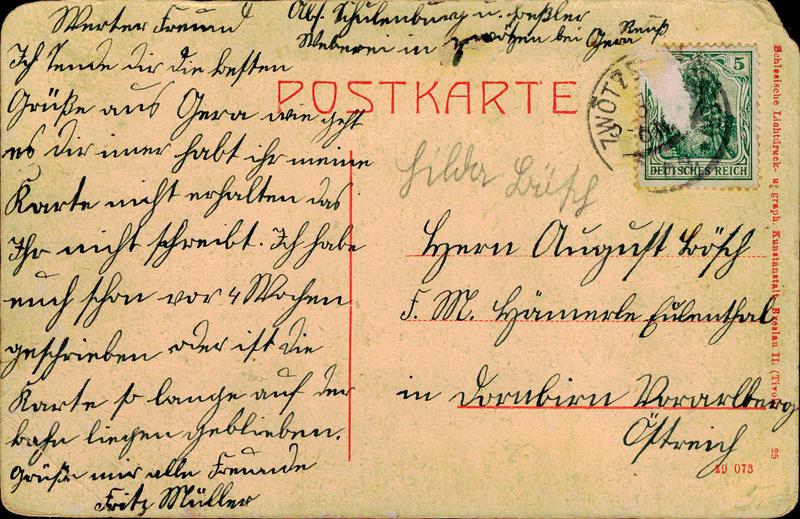 Abs. Schulenburg u. Beßler
Weberei in Zwötzen bei Gera Reuß
Werter Freund
Ich sende dir die besten
Grüße aus Gera wie geht
es dir imer habt ihr meine
Karte nicht erhalten das
Ihr nicht schreibt. Ich habe
euch schon vor 4 Wochen
geschrieben oder ist die
Karte so lange auf der
bahn liegen geblieben.
Grüße mir alle Freunde
Fritz Müller
POSTKARTE
ZWÖTZE
5
DEUTSCHES REICH
Hilda Bösch
Herrn August Bösch
F. M. Hämerle Eulenthal
in Dornbirn Vorarlberg
Östreich
Schlesische Lichtdruck- u. graph. Kunstanstalt, Breslau II. (Tivoli)
25
19 073